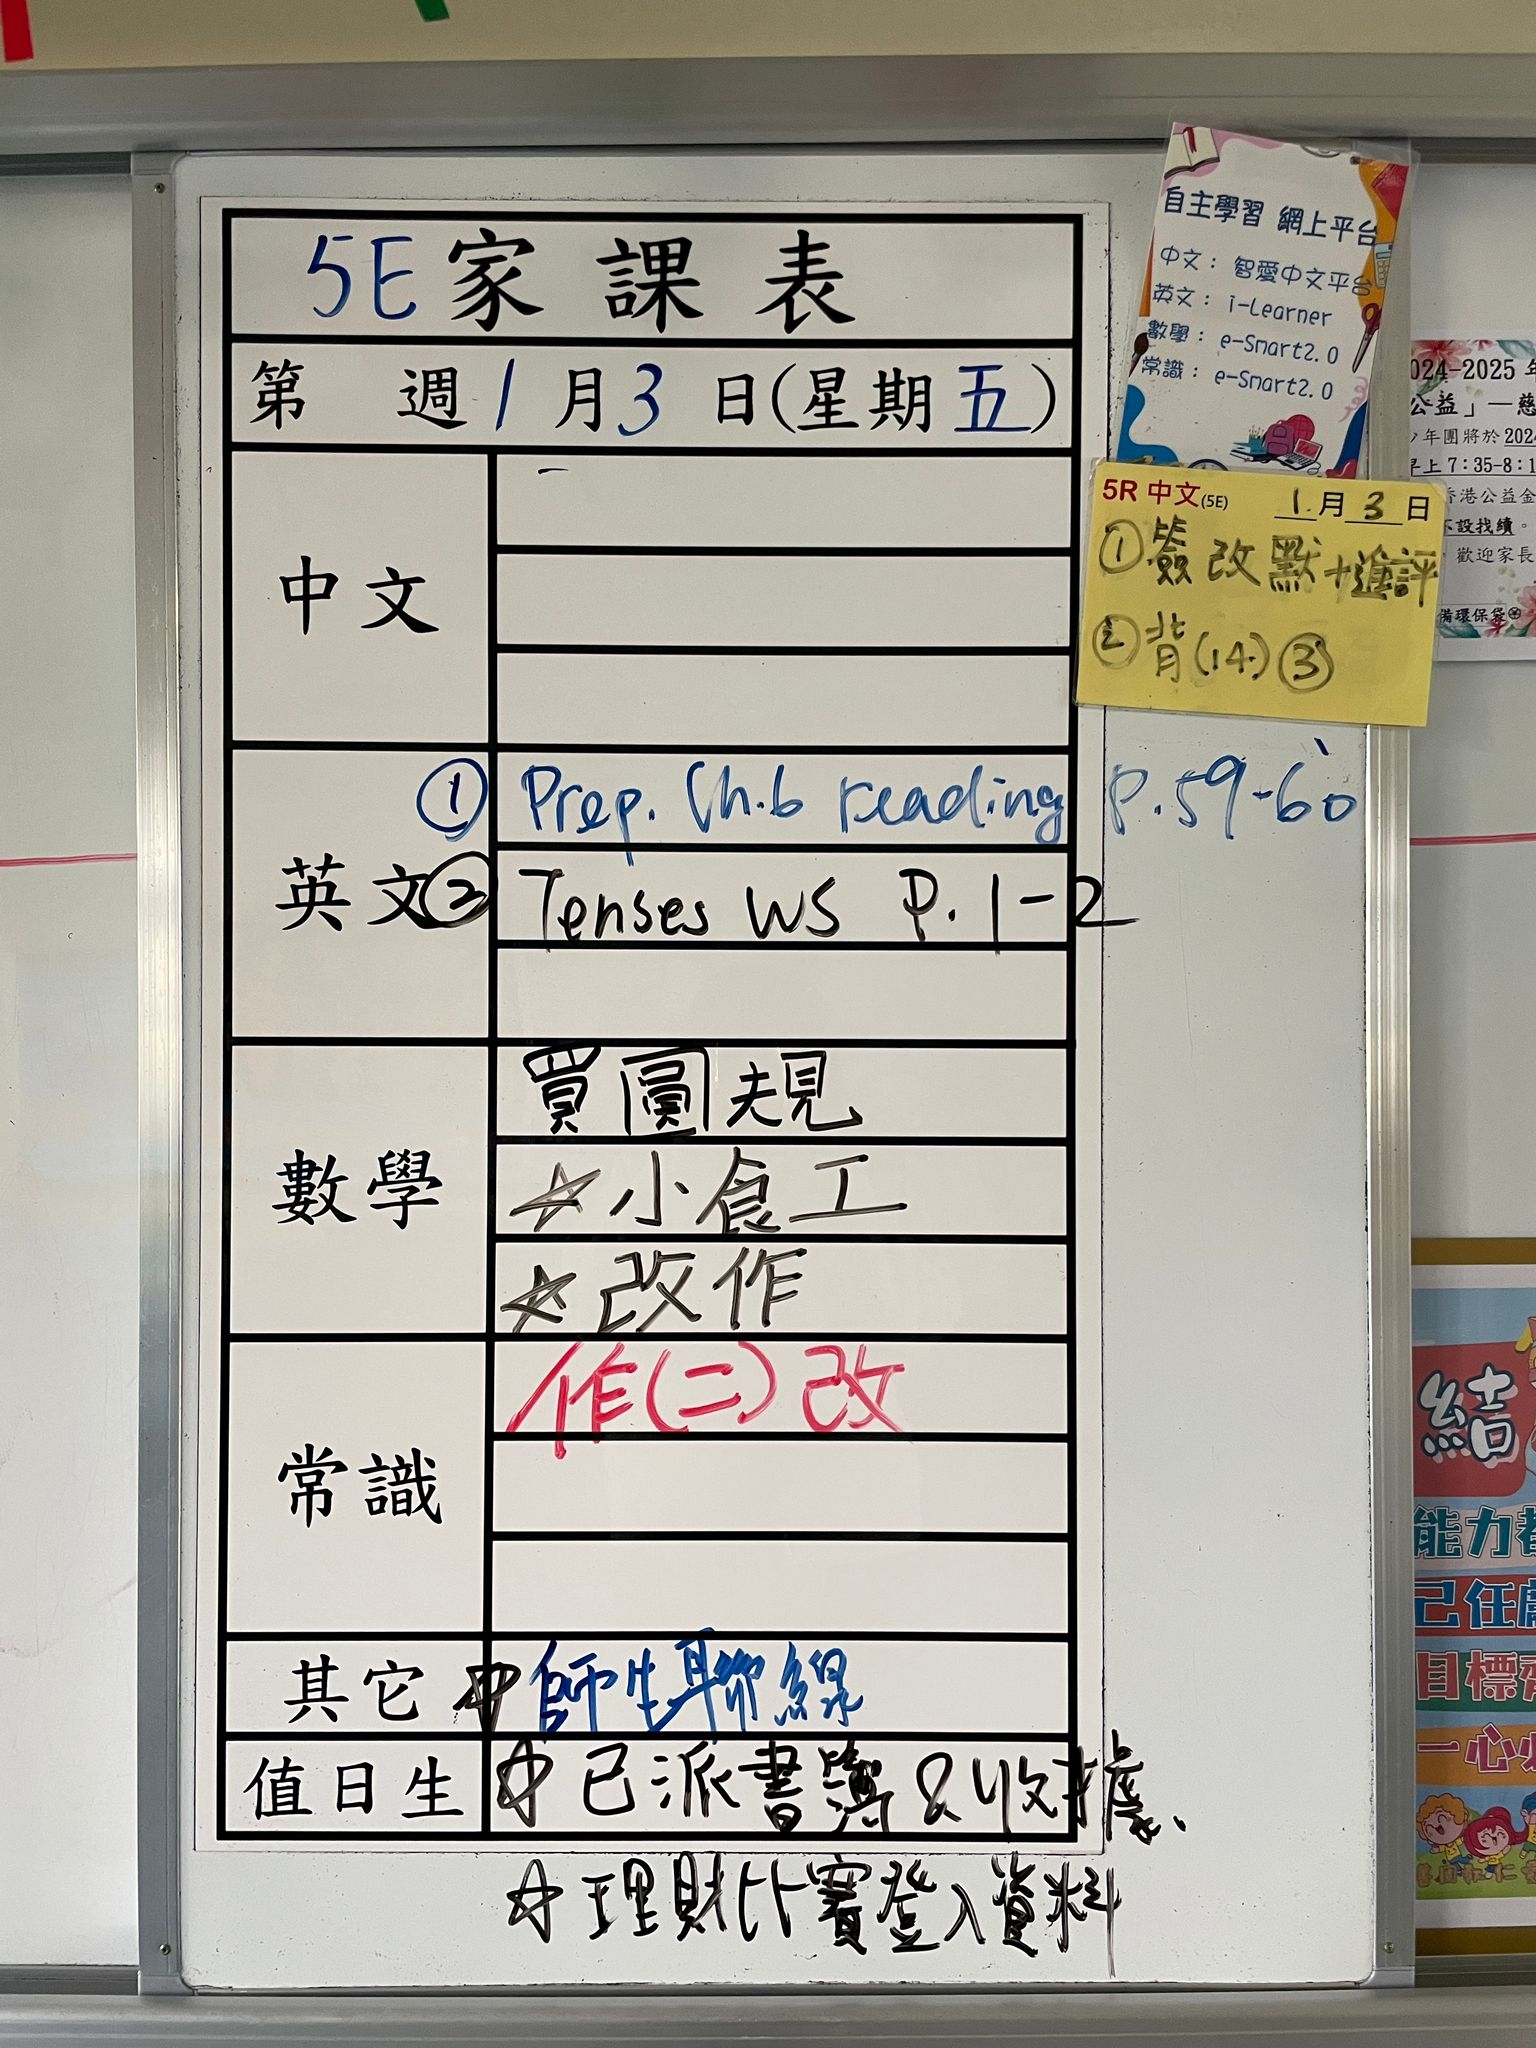 5E家課表
第 週 1月3日(星期五)
中文
英文
① Prep. Ch.6 reading p.59-60
② Tenses WS P.1-2
數學
買圓規
☆小食工
☆改作
常識
作(二)改
其它
中 師生聯線
值日生
☆已派書簿&收據.
☆理財比賽登入資料
自主學習 網上平台
中文： 智愛中文平台
英文： i-Learner
數學： e-Smart2.0
常識： e-Smart2.0
5R 中文(5E) 1月3日
①簽改默+進評
②背(14)③
024-2025 年
公益」—慈
少年團將於 2024
早上 7:35-8:1
香港公益金
不設找續。
歡迎家長
備環保袋
結
能力
己任
目標
一心